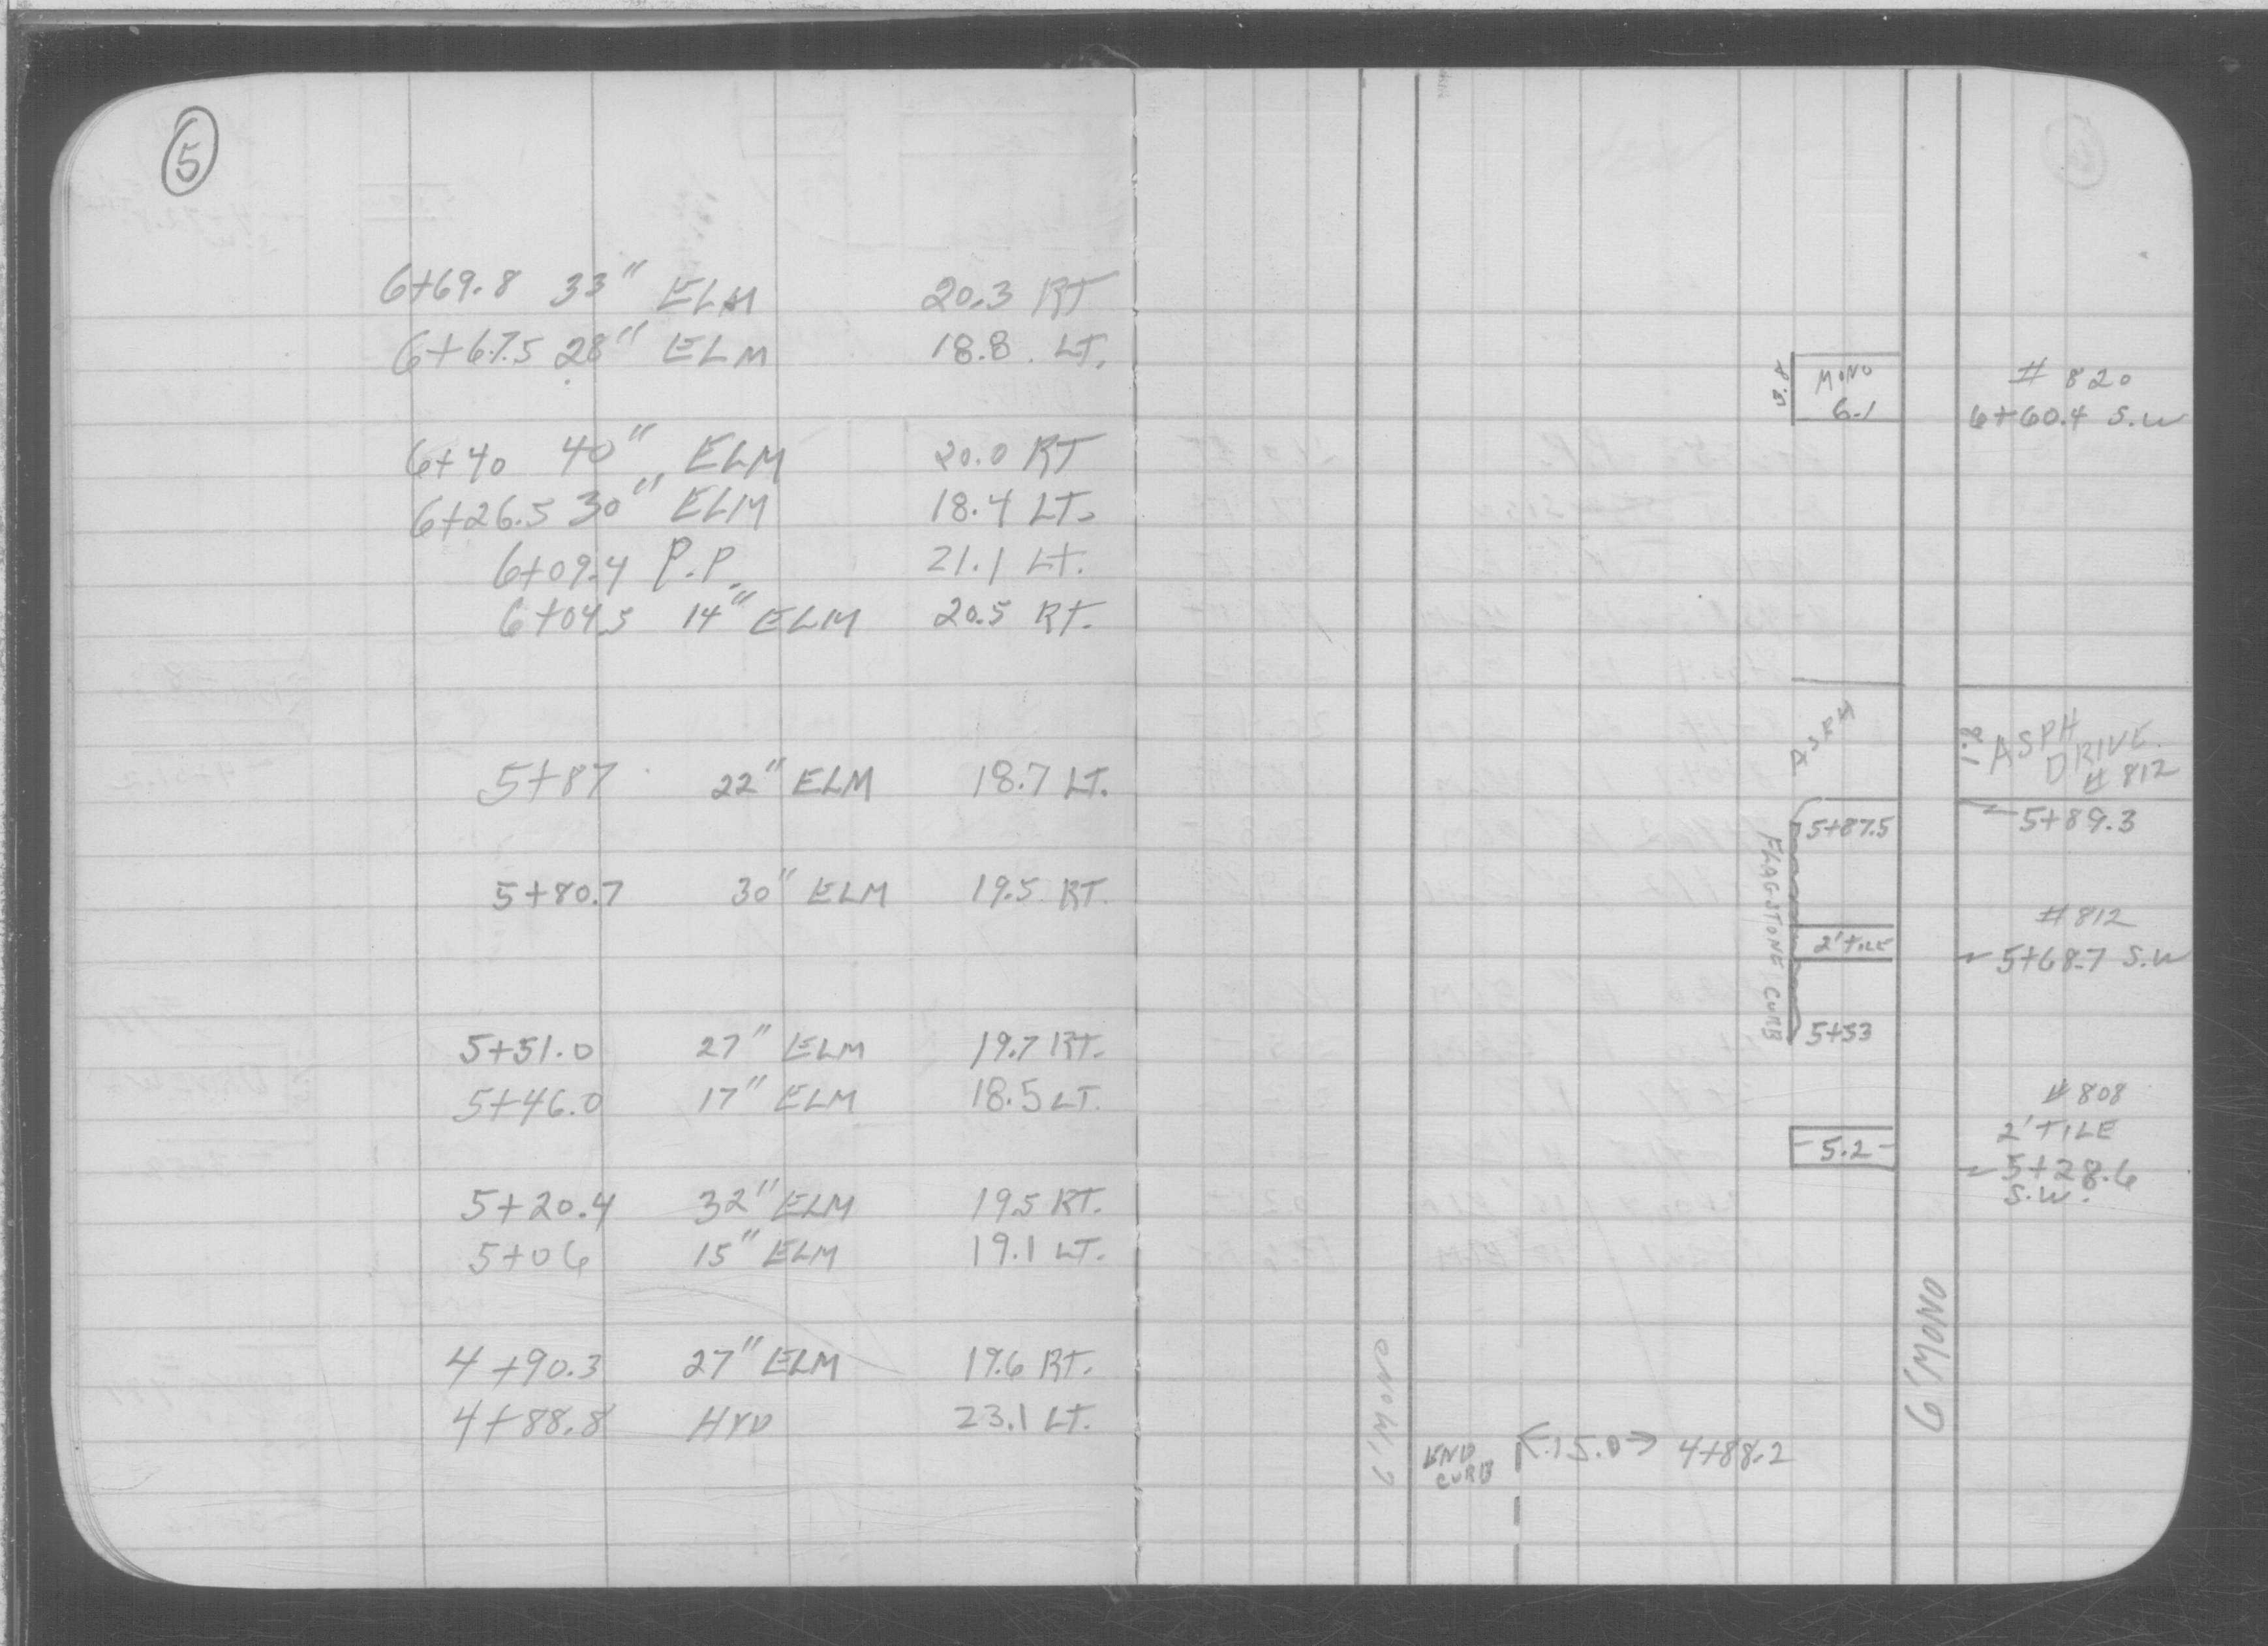 5
6+69.8 33" ELM 20.3 RT
6+67.5 28" ELM 18.8 LT.
6+40 40" ELM 20.0 RT
6+26.5 30" ELM 18.4 LT.
6+09.4 P.P. 21.1 LT.
6+04.5 14" ELM 20.5 RT.
5+87 22" ELM 18.7 LT.
5+80.7 30" ELM 19.5 RT.
5+51.0 27" ELM 19.7 RT.
5+46.0 17" ELM 18.5 LT.
5+20.4 32" ELM 19.5 RT.
5+06 15" ELM 19.1 LT.
4+90.3 27" ELM 19.6 RT.
4+88.8 HYD 23.1 LT.
MONO
6.1
# 820
6+60.4 S.W
ASPH
ASPH
DRIVE
# 812
5+87.5
5+89.3
FLAGSTONE CURB
# 812
2' TILE
5+68.7 S.W
5+53
# 808
2' TILE
5.2
5+28.6
S.W.
6' MONO
MONO
END
CURB
15.0 4+88.2